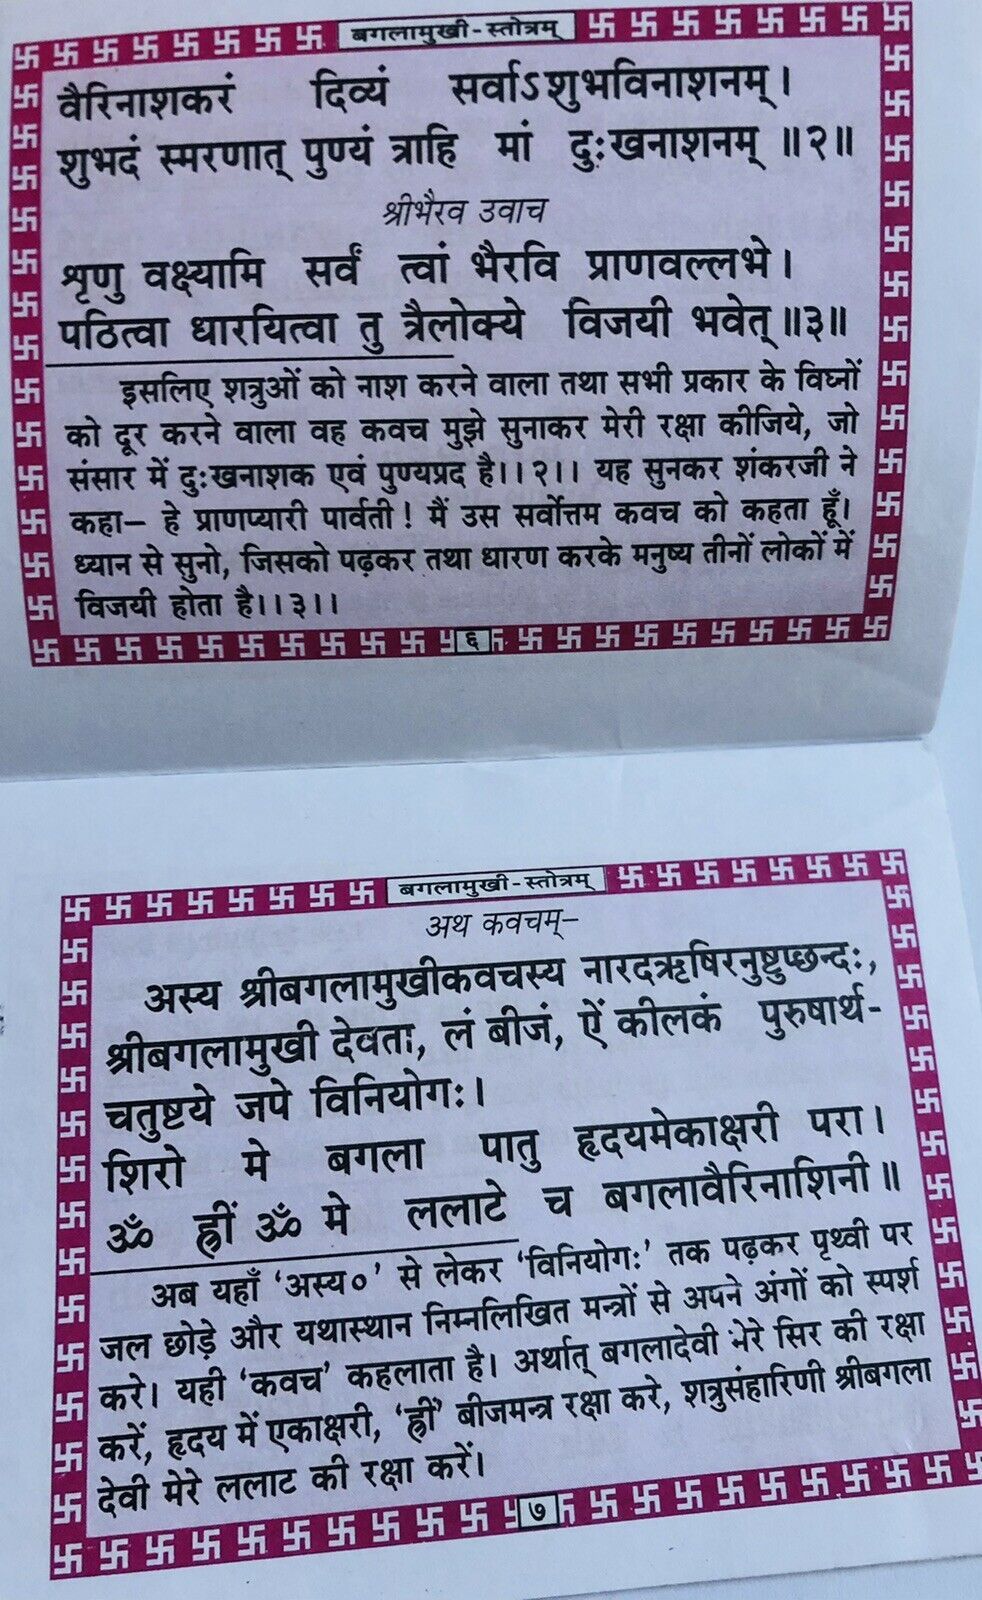 बगलामुखी-स्तोत्रम्
वैरिनाशकरं दिव्यं सर्वाऽशुभविनाशनम्।
शुभदं स्मरणात् पुण्यं त्राहि मां दुःखनाशनम् ॥२॥
श्रीभैरव उवाच
श्रृणु वक्ष्यामि सर्वं त्वां भैरवि प्राणवल्लभे।
पठित्वा धारयित्वा तु त्रैलोक्ये विजयी भवेत्॥३॥
इसलिए शत्रुओं को नाश करने वाला तथा सभी प्रकार के विघ्नों
को दूर करने वाला वह कवच मुझे सुनाकर मेरी रक्षा कीजिये, जो
संसार में दुःखनाशक एवं पुण्यप्रद है।।२।। यह सुनकर शंकरजी ने
कहा– हे प्राणप्यारी पार्वती! मैं उस सर्वोत्तम कवच को कहता हूँ।
ध्यान से सुनो, जिसको पढ़कर तथा धारण करके मनुष्य तीनों लोकों में
विजयी होता है।।३।।
६
बगलामुखी-स्तोत्रम्
अथ कवचम्–
अस्य श्रीबगलामुखीकवचस्य नारदऋषिरनुष्टुप्छन्दः,
श्रीबगलामुखी देवताः, लं बीजं, ऐं कीलकं पुरुषार्थ-
चतुष्टये जपे विनियोगः।
शिरो मे बगला पातु हृदयमेकाक्षरी परा।
ॐ ह्लीं ॐ मे ललाटे च बगलावैरिनाशिनी॥
अब यहाँ 'अस्य०' से लेकर 'विनियोगः' तक पढ़कर पृथ्वी पर
जल छोड़े और यथास्थान निम्नलिखित मन्त्रों से अपने अंगों को स्पर्श
करे। यही 'कवच' कहलाता है। अर्थात् बगलादेवी मेरे सिर की रक्षा
करें, हृदय में एकाक्षरी, 'ह्लीं' बीजमन्त्र रक्षा करे, शत्रुसंहारिणी श्रीबगला
देवी मेरे ललाट की रक्षा करें।
७